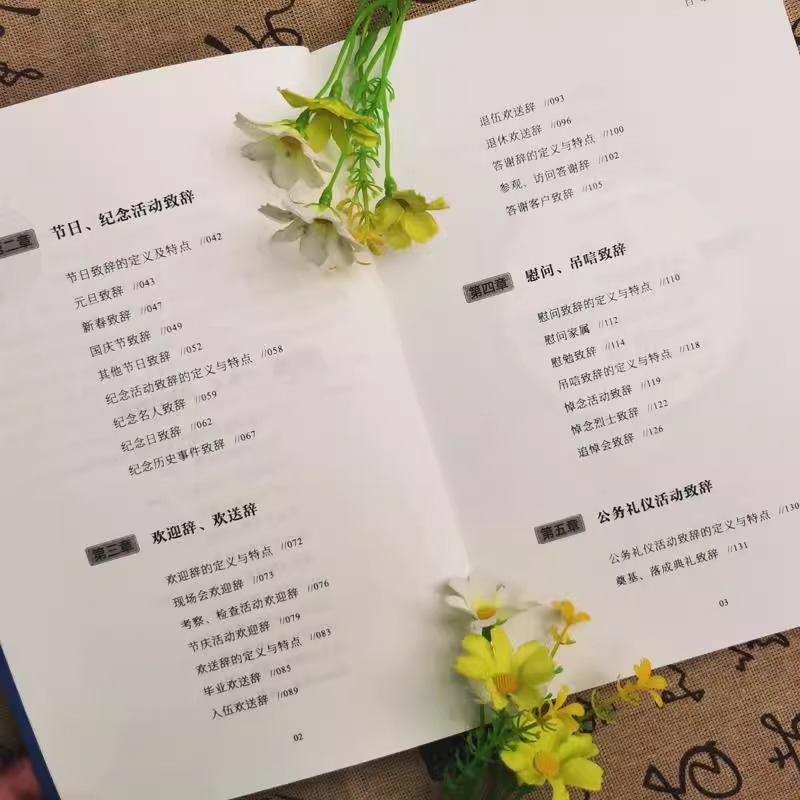 第二章 节日、纪念活动致辞
节日致辞的定义及特点 //042
元旦致辞 //043
新春致辞 //047
国庆节致辞 //049
其他节日致辞 //052
纪念活动致辞的定义与特点 //058
纪念名人致辞 //059
纪念日致辞 //062
纪念历史事件致辞 //067
第三章 欢迎辞、欢送辞
欢迎辞的定义与特点 //072
现场会欢迎辞 //073
考察、检查活动欢迎辞 //076
节庆活动欢迎辞 //079
欢送辞的定义与特点 //083
毕业欢送辞 //085
入伍欢送辞 //089
02
退伍欢送辞 //093
退休欢送辞 //096
答谢辞的定义与特点 //100
参观、访问答谢辞 //102
答谢客户致辞 //105
第四章 慰问、吊唁致辞
慰问致辞的定义与特点 //110
慰问家属 //112
慰勉致辞 //114
吊唁致辞的定义与特点 //118
悼念活动致辞 //119
悼念烈士致辞 //122
追悼会致辞 //126
第五章 公务礼仪活动致辞
公务礼仪活动致辞的定义与特点 //130
奠基、落成典礼致辞 //131
03